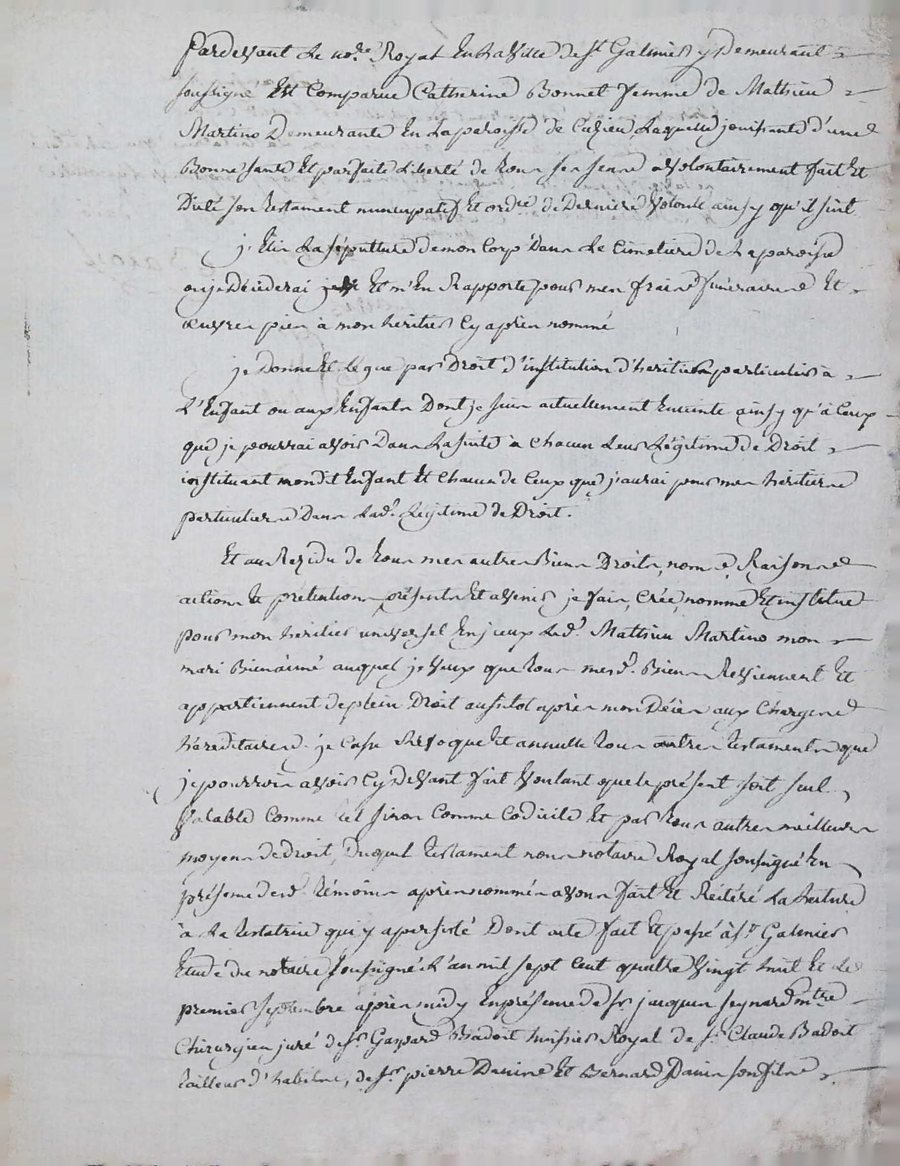 Pardevant Le no.re Royal En La Ville de St Galmier y Demeurant
soussigné Est Comparue Catherine Bonnet femme de Mathieu
Martino Demeurante En La paroisse de Cuzieu Laquelle jouissante d'une
Bonne santé Et parfaite Liberté de tous ses sens a volontairement fait Et
Dicté son testament nuncupatif Et ordre de Derniere Volonté ainsy qu'il suit
j'Elis La sépulture de mon Corp Dans Le Cimetiere de La paroisse
ou je Déciderai Et m'En Rapporte pour mes frais funéraires Et
œuvres pies à mon heritier Cy après nommé
je Donne Et legue par Droit d'institution d'heritier particulier à
L'Enfant ou aux Enfants Dont je suis actuellement Enceinte ainsy qu'à Ceux
que je pourrai avoir Dans La suite a chacun Leur Légitime de Droit
instituant mondit Enfant Et chacun de Ceux que j'aurai pour mes héritiers
particuliers Dans Lad. Légitime de Droit.
Et au Rezidu de tous mes autres Biens Droits, noms, Raisons
actions Et prétentions présents Et avenir je fais, Crée, nomme Et institue
pour mon héritier universel En jceux Led. Mathieu Martino mon
mari Bienaimé auquel je Veux que tous mesd. Biens Reviennent Et
appartiennent de plein Droit aussitot après mon Décès aux Charges
héréditaires. je Casse Revoque Et annulle tous autres testaments que
je pourrois avoir Cy Devant fait Voulant que le présent soit seul
Valable Comme tel sinon Comme Codicile Et par tous autres meilleurs
moyens de droit, Duquel testament nous notaire Royal soussigné En
présence desd. témoins après nommés avons fait Et Réitéré La Lecture
à La testatrice qui y a persisté Dont acte fait Et passé à St Galmier
Etude du notaire soussigné L'an mil sept cent quatre Vingt huit Et Le
premier septembre après midy En présence de Sr jacques seynard mtre
Chirurgien juré de Sr Gaspard Badoit huissier Royal de Sr Claude Badoit
tailleur d'habits, de Sr pierre Danine Et Bernard Danin son fils